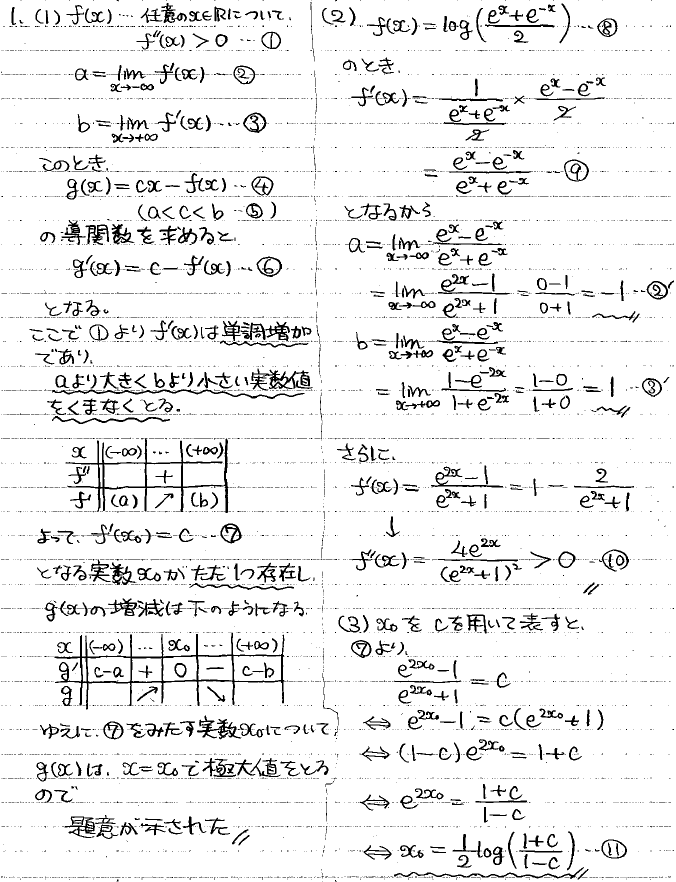 1. (1) f(x) … 任意のx∈Rについて、
f''(x) > 0 … ①
a = lim_{x→-∞} f'(x) … ②
b = lim_{x→+∞} f'(x) … ③
このとき、
g(x) = cx - f(x) … ④
(a < c < b … ⑤)
の導関数を求めると、
g'(x) = c - f'(x) … ⑥
となる。
ここで①より f'(x)は単調増加
であり、
aより大きくbより小さい実数値
をくまなくとる。
x (-∞) … (+∞)
f'' +
f' (a) ↗ (b)
よって、f'(x₀) = c … ⑦
となる実数x₀がただ1つ存在し、
g(x)の増減は下のようになる
x (-∞) … x₀ … (+∞)
g' c-a + 0 - c-b
g ↗ ↘
ゆえに、⑦をみたす実数x₀について、
g(x)は、x=x₀で極大値をとる
ので
題意が示された
(2) f(x) = log((e^x + e^{-x})/2) … ⑧
のとき、
f'(x) = 1/((e^x + e^{-x})/2) × (e^x - e^{-x})/2
= (e^x - e^{-x})/(e^x + e^{-x}) … ⑨
となるから
a = lim_{x→-∞} (e^x - e^{-x})/(e^x + e^{-x})
= lim_{x→-∞} (e^{2x} - 1)/(e^{2x} + 1) = (0-1)/(0+1) = -1 … ②'
b = lim_{x→+∞} (e^x - e^{-x})/(e^x + e^{-x})
= lim_{x→+∞} (1 - e^{-2x})/(1 + e^{-2x}) = (1-0)/(1+0) = 1 … ③'
さらに、
f'(x) = (e^{2x} - 1)/(e^{2x} + 1) = 1 - 2/(e^{2x} + 1)
↓
f''(x) = 4e^{2x}/(e^{2x} + 1)² > 0 … ⑩
(3) x₀をcを用いて表すと、
⑦より、
(e^{2x₀} - 1)/(e^{2x₀} + 1) = c
⇔ e^{2x₀} - 1 = c(e^{2x₀} + 1)
⇔ (1-c)e^{2x₀} = 1+c
⇔ e^{2x₀} = (1+c)/(1-c)
⇔ x₀ = 1/2 log((1+c)/(1-c)) … ⑪